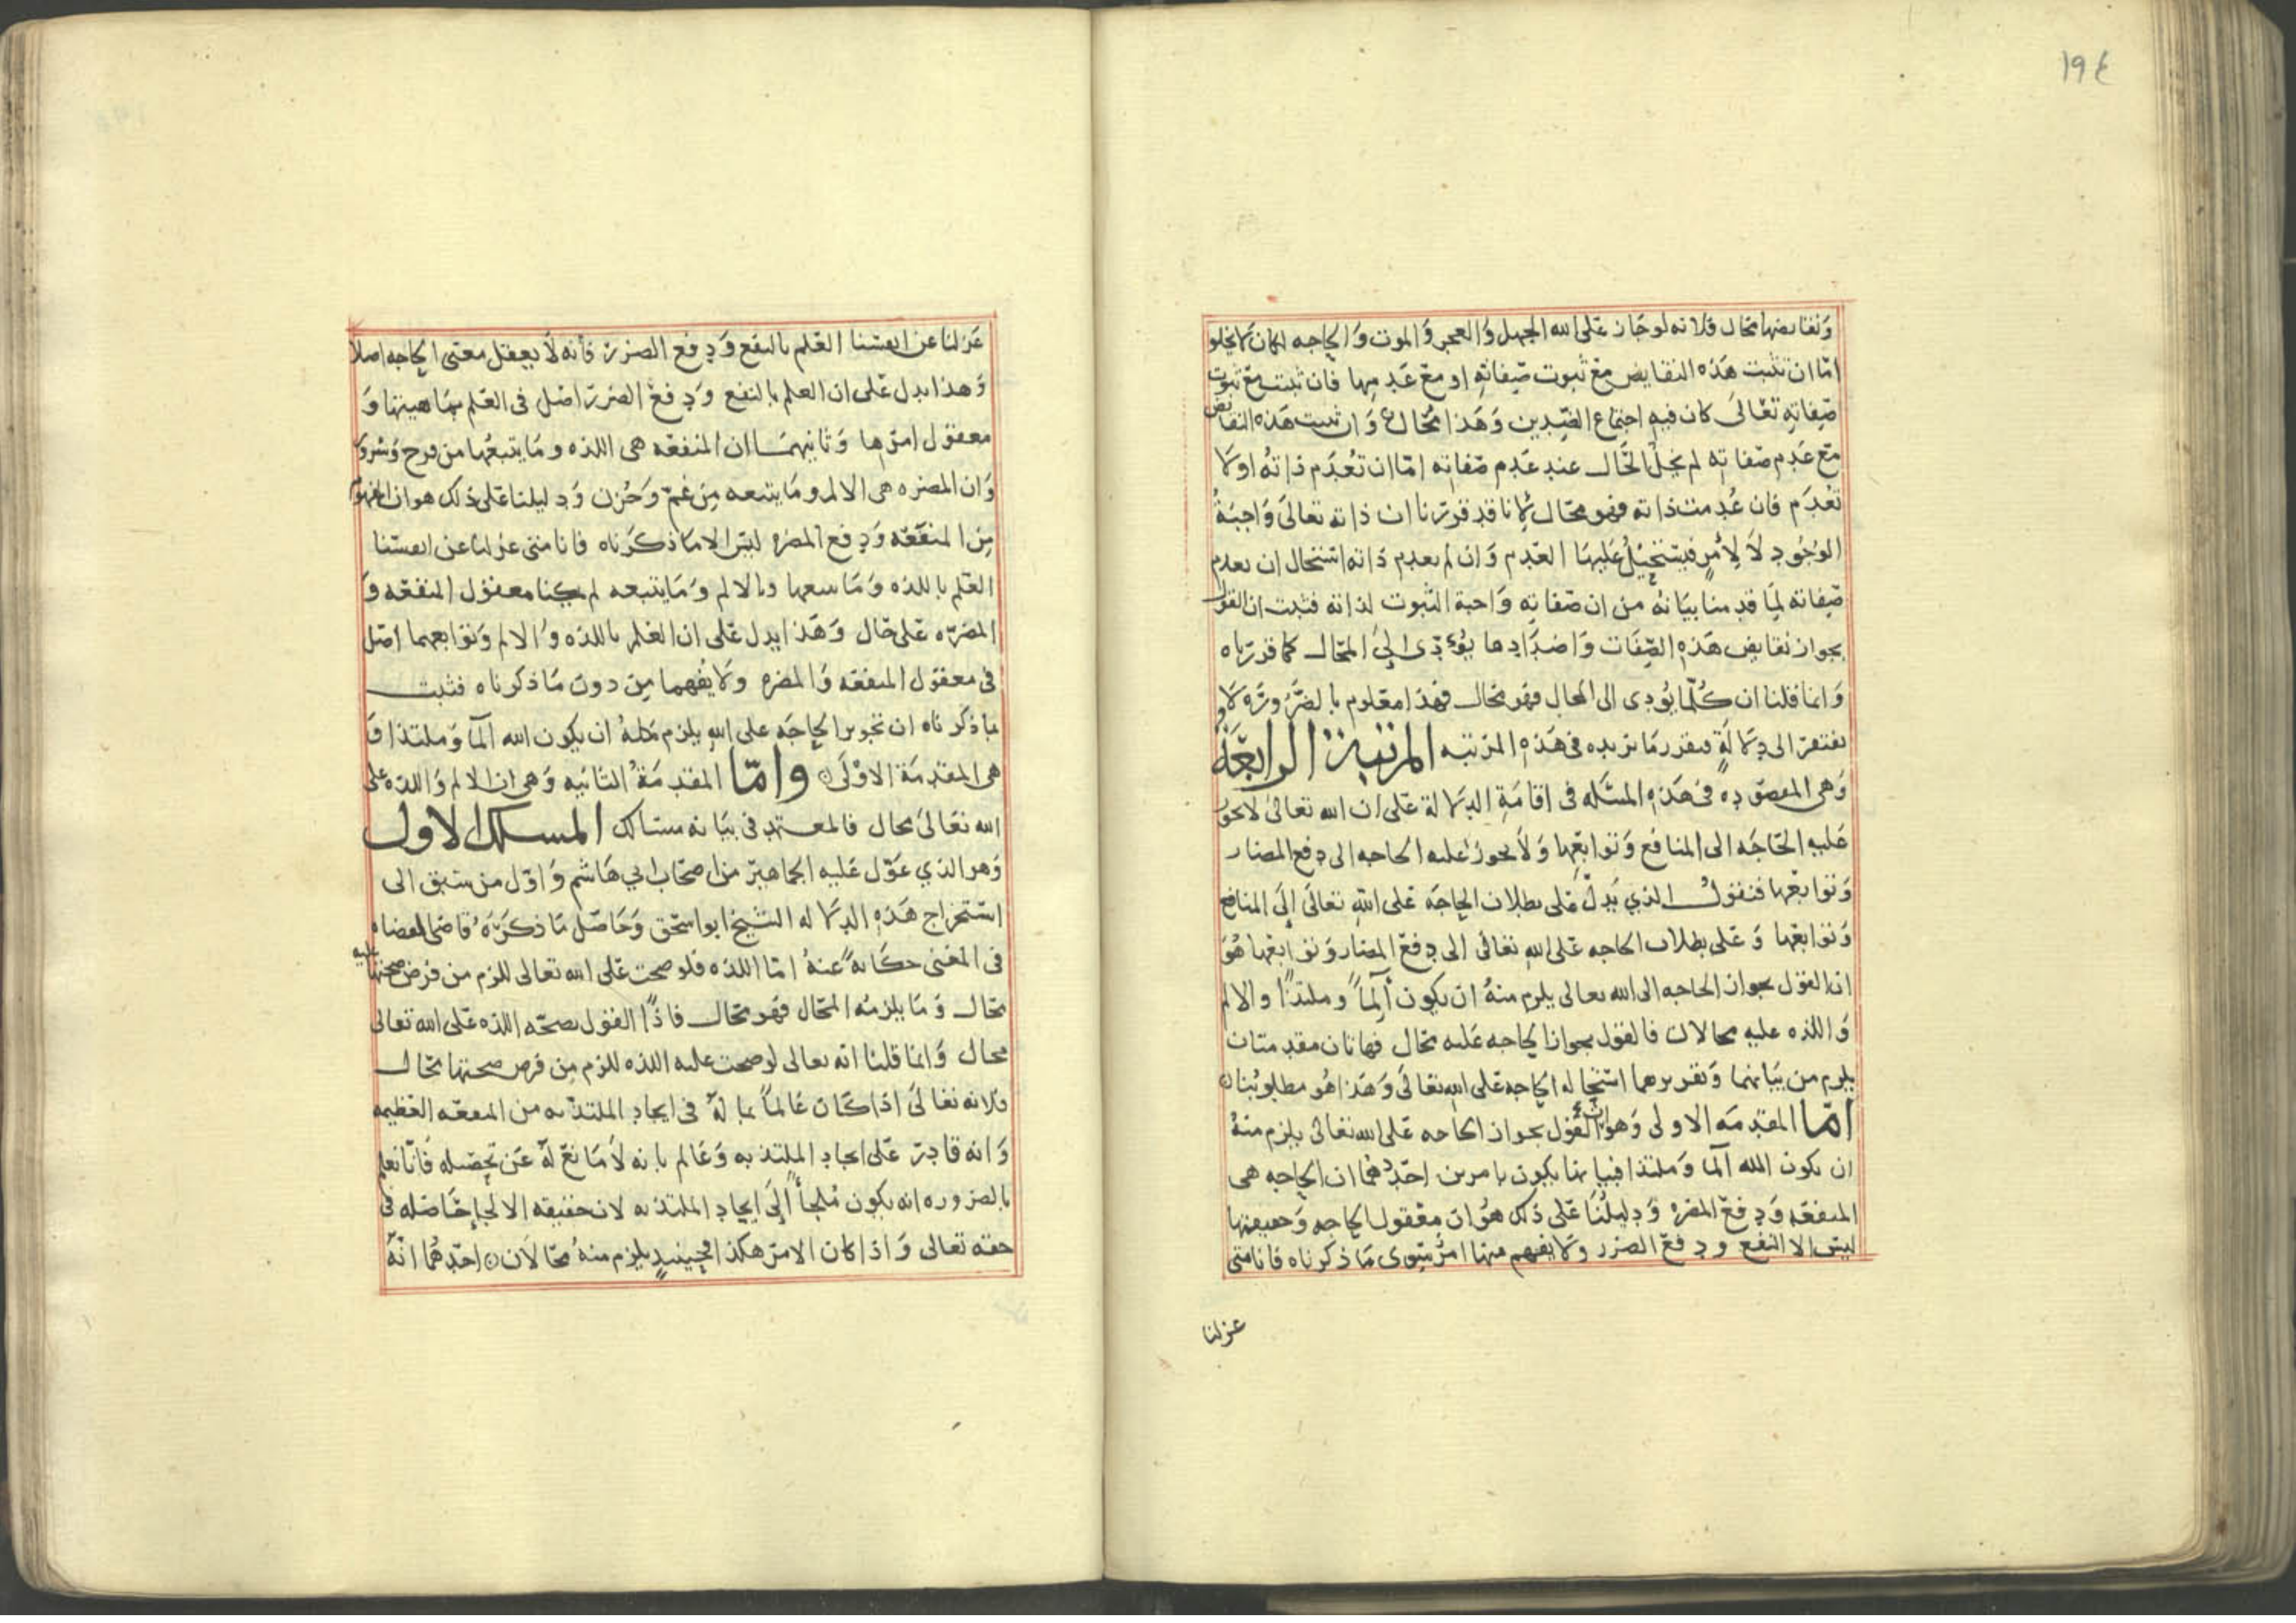 ١٩٤
وَنقايضها محال فلانه لو جَاز عَلى الله الجهل وَالعجز وَالموت وَالحاجه لكان لا يخلو
امّا ان تثبت هَذه النقايض مَع ثبوت صِفاتهِ او مَع عَدمِها فان ثبتت مع ثبوت
صِفاتهِ تعَالىَ كان فيهِ اجتماع الضِّدين وَهَذا محَال وَان ثبتت هَذه النقايض
مَع عَدم صفاتهِ لم يخل الحَال عند عَدم صفاته امّا ان تُعدَم ذاتهُ او لا
تعدَم فان عُدِمت ذاته فهو محَال لانا قد قررنا ان ذاته تعالىَ وَاجبَةُ
الوجُودِ لا لِأمرٍ فيَستحيلُ عَليهَا العَدم وَان لم يعدم ذاته استحال ان يعدم
صِفاته لِمَا قدمنا بيَانهُ من ان صفاته وَاجبة الثبوت لذاته فثبت ان القول
بجواز نقايض هَذهِ الصِّفات وَاضدَادِها يؤدّى الىَ المحَال كما قررناه
وَانما قلنا ان كُلّما يُودى الى المحال فهو محَال فهَذا معَلوم بالضَّرُورَه لا
يفتقر الى دِلالَةٍ فيقرر مَا نريده فى هَذهِ المرتبه المرتبة الرابعَة
وَهى المقصوده فى هَذهِ المسَله فى اقامَةِ الدِلالة عَلى ان الله تعالىَ لا يجوز
عَليهِ الحَاجَه الى المنافع وَتوابعِها وَلا يجوز عليه الحاجه الى دفع المضار
وَتوابعها فنقول الذي يَدلّ عَلى بطلان الحاجَة عَلى اللهِ تعالىَ إلىَ المنافع
وَتوابعها وَعَلى بطلان الحاجه عَلى اللهِ تعالى الى دِفع المضار وَتوابعها هُوَ
ان القول بجواز الحاجه الى الله تعالى يلزم منهُ ان يكون آلماً وملتذاً والالم
وَاللذه عليهِ محالان فالقول بجواز الحاجه عَليه محَال فهاتان مقدمتان
يلزم من بيَانهما وَتقريرهما استحاله الحاجه عَلى اللهِ تعَالىَ وَهَذا هُو مطلوبُنا
امّا المقدمَه الاولى وَهو ان القول بجواز الحاجه عَلى الله تعَالى يلزم منهُ
ان يكون الله آلما وَملتذا فبيانها يكون بامرين احَدُهمَا ان الحاجه هى
المنفعَه وَدفعَ المضره وَدليلُنَا عَلى ذلك هوُ ان معَقول الحاجهِ وَحقيقتها
ليسَ الا النفع ودفعَ الضرر وَلا يفهم منها امرٌ سِوى مَا ذكرناه فانا متى
عزلنا
عَزلنا عن انفسنا العَلم بالنفع وَدفع الضرر فانه لَا يعقل معَنى الحاجه اصلا
وَهذا يدل عَلى ان العلم بالنفع وَدفعَ الضرر اصَل فى العَلم بمَاهيتها وَ
معقول امرها وَثانيهمَا ان المنفعَه هى اللذه ومَا يتبعُها من فرح وَسرو
وَان المضره هى الالم ومَا يتبعه مِن غمّ وَحُزن وَدليلنا عَلى ذلك هو ان المفهو
مِن المنفعَه وَدفع المضره ليسَ الا مَا ذكرَناه فانا متى عزلنا عن انفسَنا
العَلم باللذه وَمَا يتبعها وبالالم وَمَا يتبعه لم يمكنا معقول المنفعَه وَ
المضرّه عَلى حَال وَهَذا يدل عَلى ان العَلم باللذه وَالالم وَتوابعهما اصَل
فى معقول المنفعَه وَالمضره وَلا يفهما مِن دون مَا ذكرناه فثبت
بما ذكرناه ان تجويز الحاجَه على اللهِ يلزم منهُ ان يكون الله آلمًا وَملتذا فهَ
هى المقدمَة الاوْلَى وامّا المقدمَةُ الثانيه وَهى ان الالم وَاللذه على
الله تعَالىَ محال فالمعتمد فى بيَانه مسَالك المسلك الاول
وَهو الذي عَوّل عَليهِ الجماهير من اصحَاب ابي هَاشم وَاوّل من سَبق الى
استخراج هَذهِ الدلاله الشيخ ابو اسحَق وَحَاصَل مَا ذكرَهُ قاضى القضاه
فى المغنى حكَايةً عنهُ امّا اللذه فلو صحت عَلى الله تعالى للزم من فرض صحتها عليه
محَال وَمَا يلزمُه المحَال فهو محَال فاذًا القول بصحّه اللذه عَلى الله تعالى
محَال وَانما قلنا انه تعالى لو صحت عليه اللذه للزم مِن فرض صحتها محَال
فلانه تعَالىَ اذا كَان عَالماً بما لهُ فى ايجاد الملتذ به من المنفعَه العَظيمه
وَانه قادر عَلى ايجادِ الملتذ به وَعَالم بانه لا مَانع لَهُ عَن تحِصيله فانَّا نعلم
بالضروره انه يكون مُلجأً الىَ ايجادِ الملتذ به لان حقيقه الالجاء حَاصَله فى
حقه تعالى وَاذا كان الامر هكذا فحينئذٍ يلزم منهُ محَالان احَدهُما انّهُ